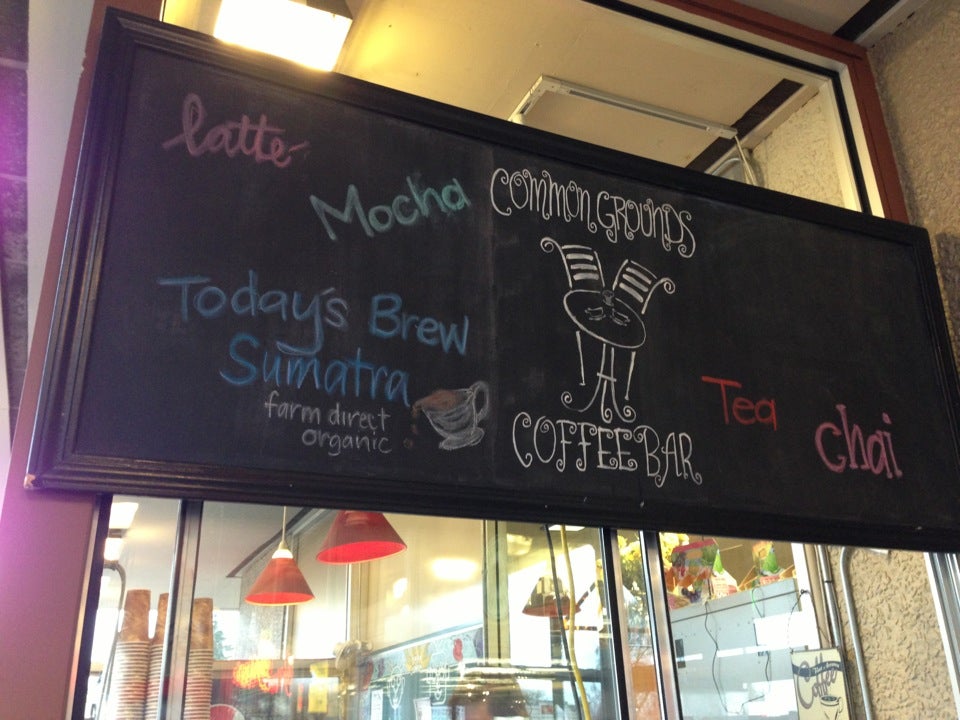 latte
Mocha
Today's Brew
Sumatra
farm direct
organic
COMMON GROUNDS
COFFEE BAR
Tea
chai
Coffee